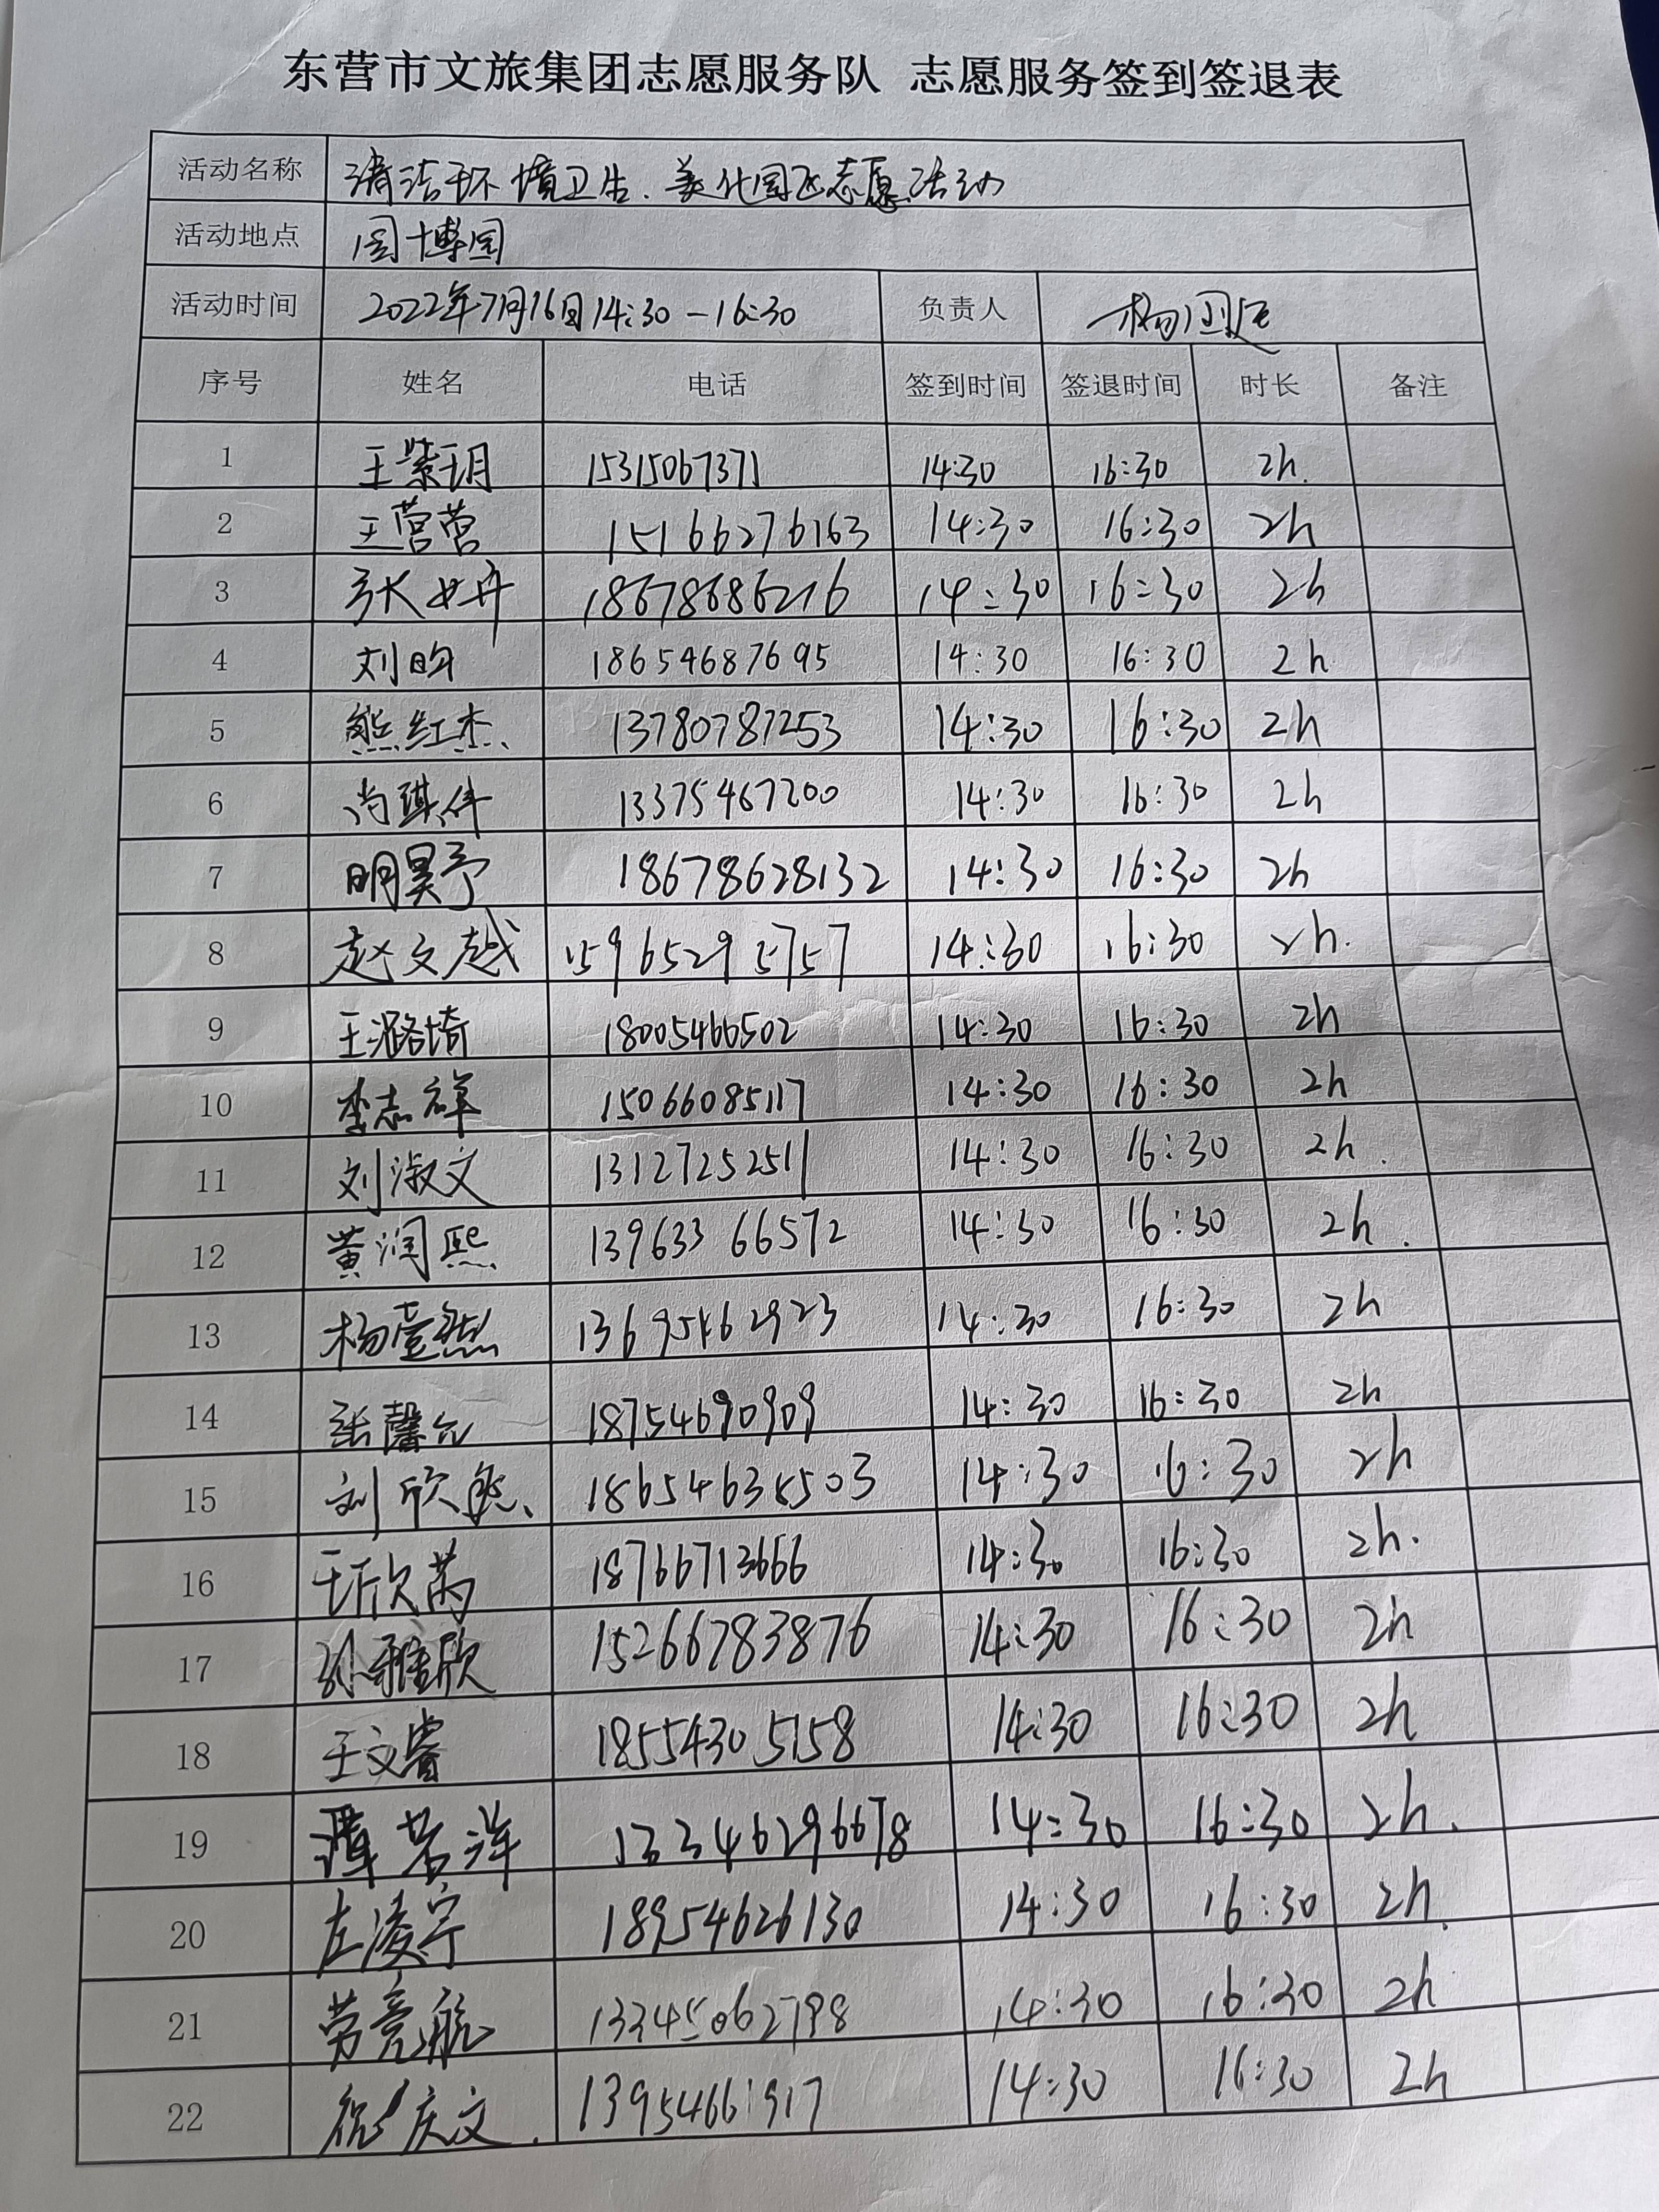 东营市文旅集团志愿服务队 志愿服务签到签退表
活动名称 清洁环境卫生、美化园区志愿活动
活动地点 园博园
活动时间 2022年7月16日14:30-16:30 负责人 杨国廷
序号 姓名 电话 签到时间 签退时间 时长 备注
1 王紫玥 15315067371 14:30 16:30 2h.
2 王营营 15166276163 14:30 16:30 2h
3 张 18678686216 14:30 16:30 2h
4 刘昀 18654687695 14:30 16:30 2h
5 熊红杰 13780787253 14:30 16:30 2h
6 尚琪伟 13375467200 14:30 16:30 2h
7 明昊予 18678628132 14:30 16:30 2h
8 赵文越 15965295757 14:30 16:30 2h.
9 王潞琦 18005466502 14:30 16:30 2h
10 李志祥 15066085117 14:30 16:30 2h
11 刘淑文 13127252511 14:30 16:30 2h.
12 黄润熙 13963366572 14:30 16:30 2h.
13 杨萱然 13695462923 14:30 16:30 2h
14 张馨允 18754690909 14:30 16:30 2h
15 刘欣然 18654638503 14:30 16:30 2h
16 于欣芮 18766713666 14:30 16:30 2h.
17 孙雅欣 15266783876 14:30 16:30 2h
18 王文睿 18554305158 14:30 16:30 2h
19 谭茗洋 13346296678 14:30 16:30 2h.
20 左凌宇 18954626130 14:30 16:30 2h.
21 劳竞航 13345062798 14:30 16:30 2h
22 祝庆文. 13954661917 14:30 16:30 2h